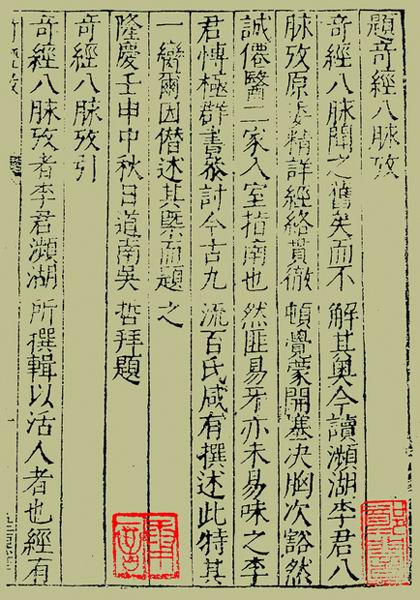 題奇經八脉攷
奇經八脉聞之舊矣而不解其奥今讀瀕湖李君八
脉攷原委精詳經絡貫徹頓覺蒙開塞决胸次豁然
誠僊醫二家入室指南也然匪易牙亦未易味之李
君愽極群書叅討今古九流百氏咸有撰述此特其
一臠爾因僭述其槩而題之
隆慶壬申中秋日道南吳哲拜題
奇經八脉攷引
奇經八脉攷者李君瀕湖所撰輯以活人者也經有